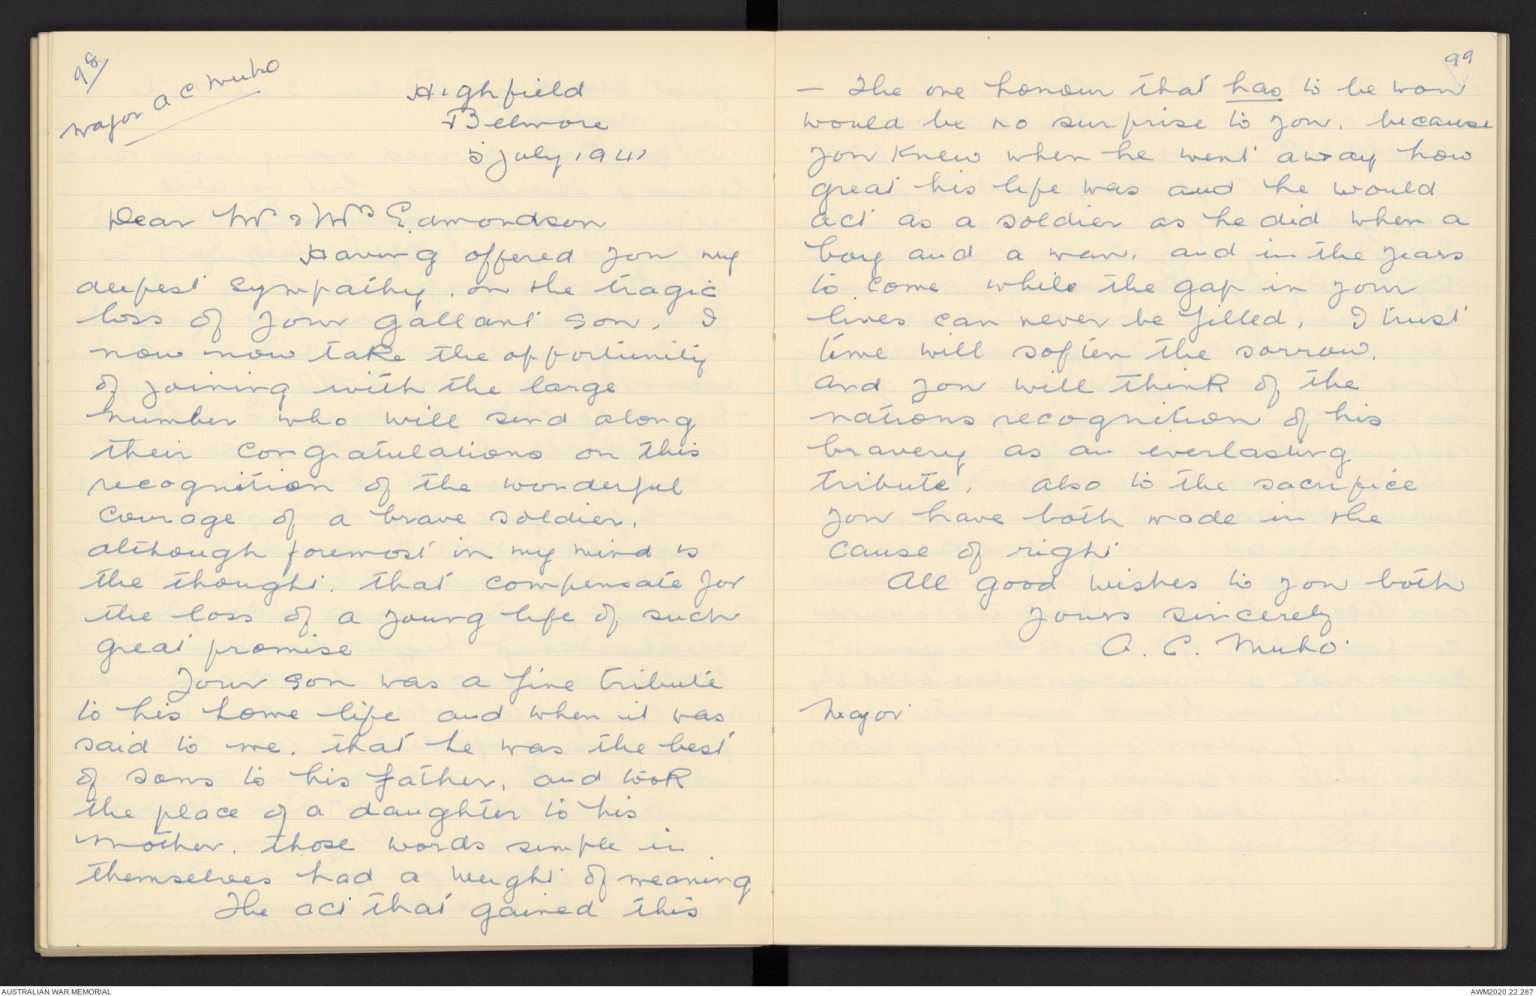 98/
Major A C Muho
Highfield
Belmore
5 July 1941
Dear Mr & Mrs Edmondson
Having offered you my
deepest sympathy. on the tragic
loss of your gallant son, I
now now take the opportunity
of joining with the large
number who will send along
their congratulations on this
recognition of the wonderful
courage of a brave soldier,
although foremost in my mind is
the thought. that compensate for
the loss of a young life of such
great promise
Your son was a fine tribute
to his home life and when it was
said to me. that he was the best
of sons to his father, and took
the place of a daughter to his
mother. those words simple in
themselves had a weight of meaning
The act that gained this
99
– The one honour that has to be won
would be no surprise to you. because
you knew when he went away how
great his life was and he would
act as a soldier as he did when a
boy and a man. and in the years
to come while the gap in your
lives can never be filled, I trust
time will soften the sorrow.
and you will think of the
nations recognition of his
bravery as an everlasting
tribute, also to the sacrifice
you have both made in the
cause of right
All good wishes to you both
yours sincerely
A. C. Muho.
Major
AUSTRALIAN WAR MEMORIAL
AWM2020.22.287